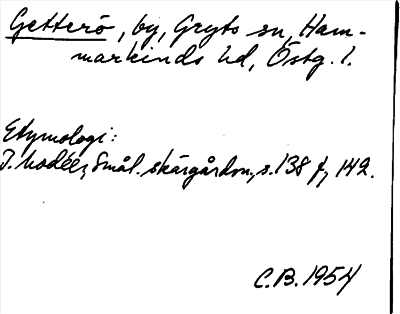 Getterö, by, Gryts sn, Ham-
markinds hd, Östg. l.
Etymologi:
I. Modéer, Smål. skärgårdsn., s. 138 f, 142.
C.B. 1954